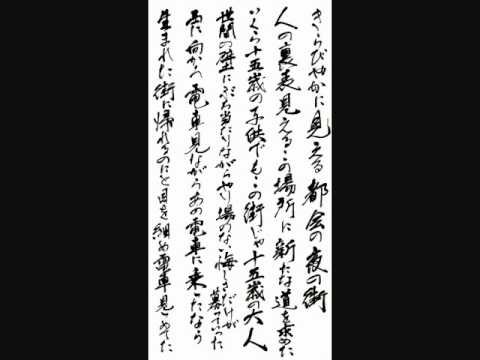 きらびやかに見える都会の夜の街
人の裏表見えるこの場所に新たな道を求めた
いくら十五歳の子供でもこの街じゃ十五歳の大人
世間の壁にぶち当たりながらやり場のない悔しさだけが募っていった
西に向かう電車見ながらあの電車に乗ったなら
生まれた街に帰れるのにと目を細め電車見つめてた